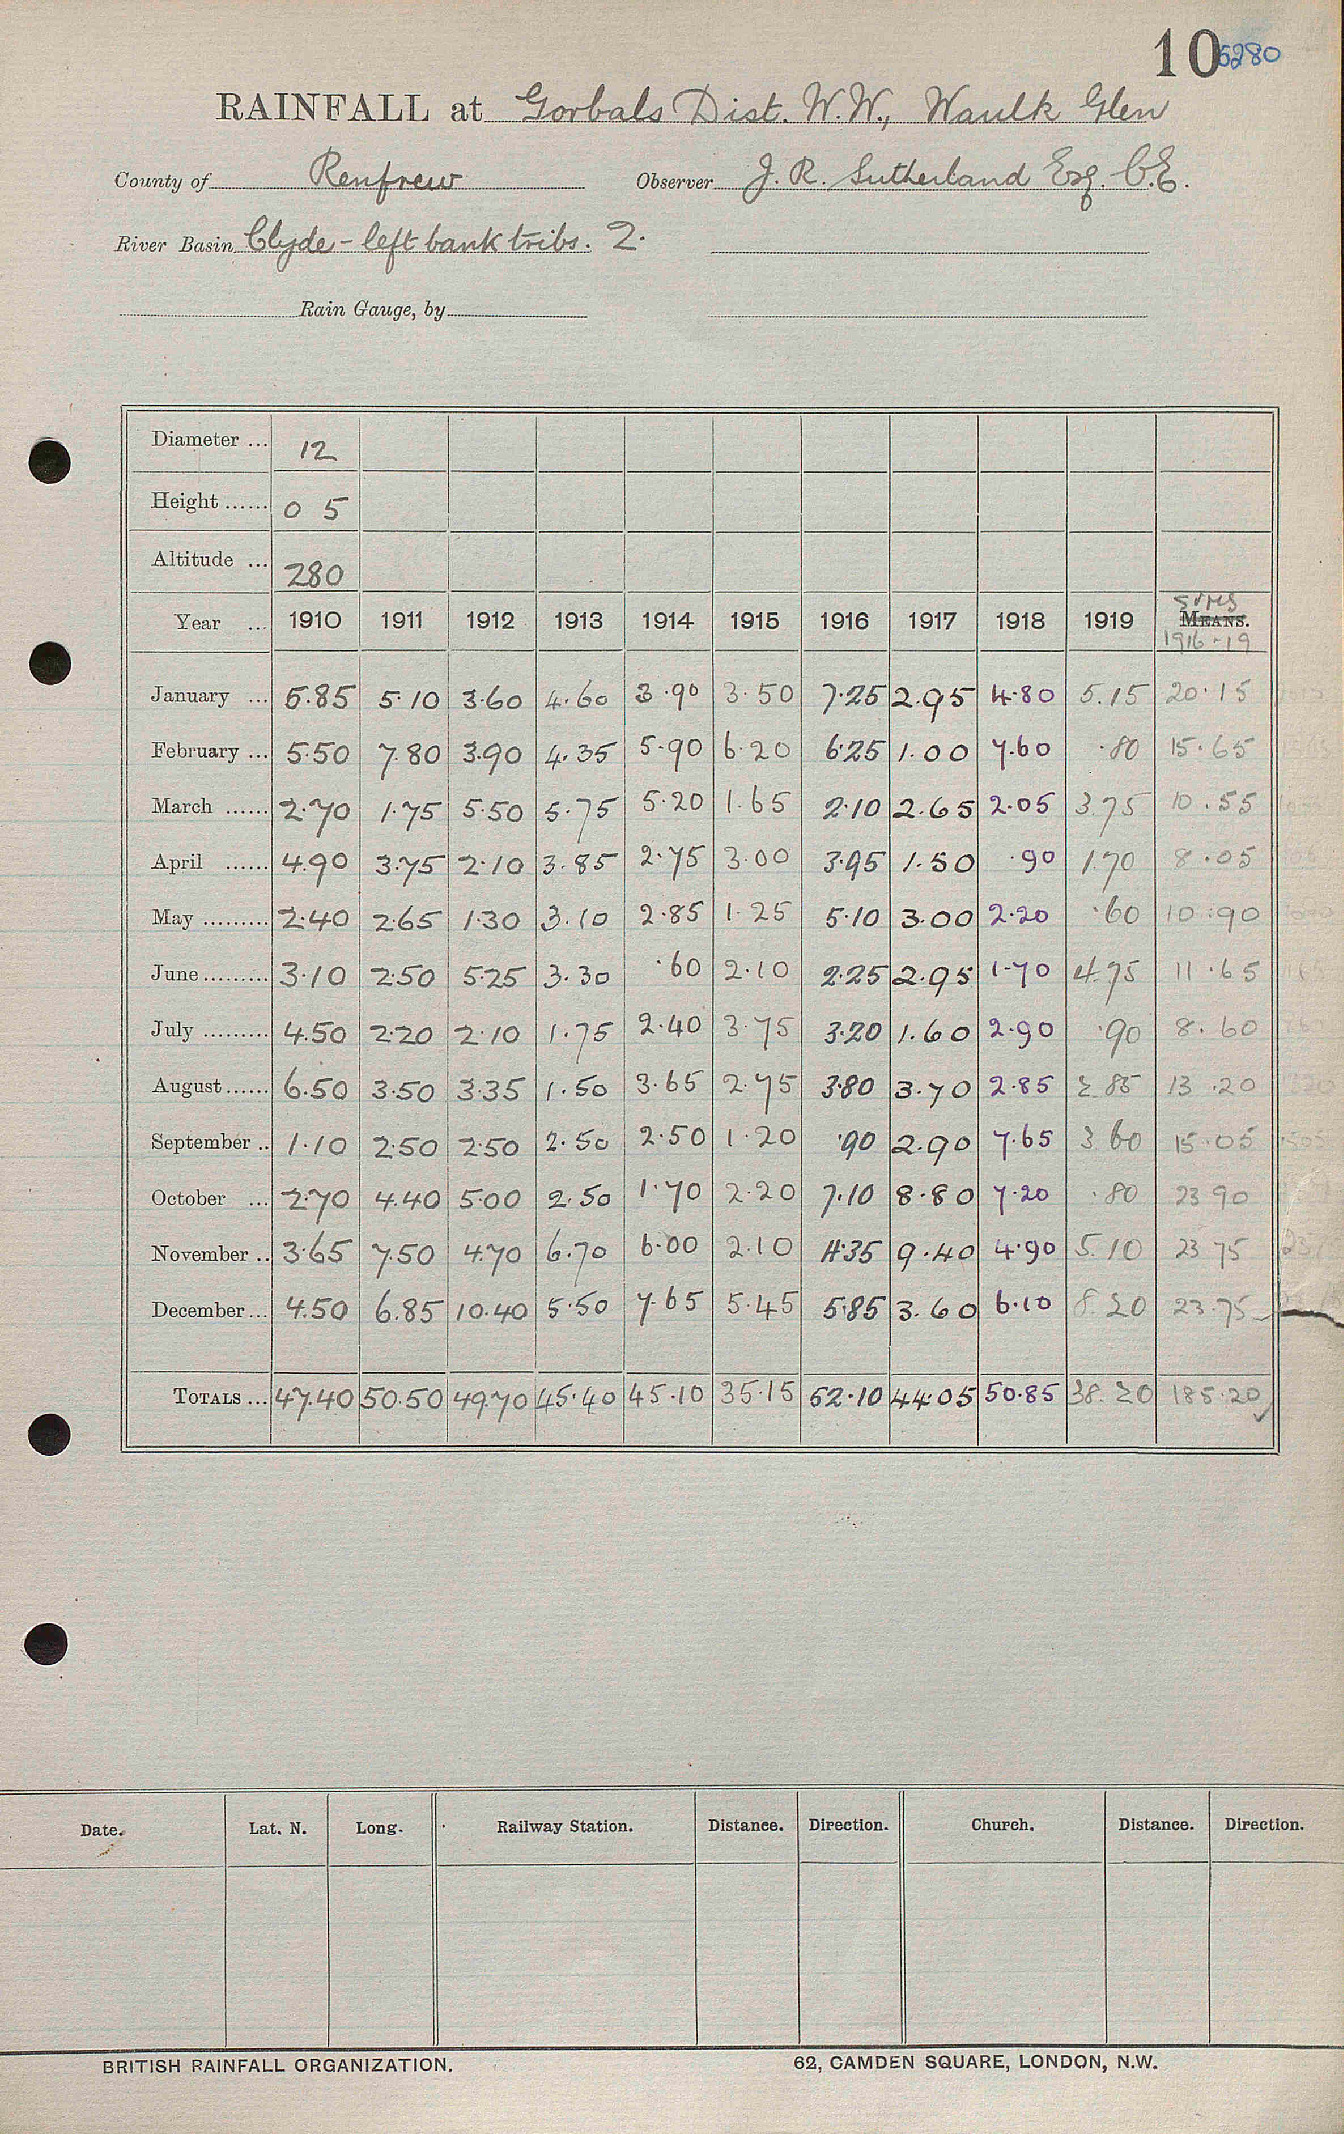 10 5280
RAINFALL at Gorbals Dist. W.W., Waulk Glen
County of Renfrew Observer J. R. Sutherland Esq. C.E.
River Basin Clyde - left bank tribs. 2.
Rain Gauge, by
Diameter ... 12
Height ...... 0 5
Altitude ... 280
SUMS
Year ... 1910 1911 1912 1913 1914 1915 1916 1917 1918 1919 MEANS.
1916-19
January ... 5.85 5.10 3.60 4.60 3.90 3.50 7.25 2.95 4.80 5.15 20.15
February ... 5.50 7.80 3.90 4.35 5.90 6.20 6.25 1.00 7.60 .80 15.65
March ...... 2.70 1.75 5.50 5.75 5.20 1.65 2.10 2.65 2.05 3.75 10.55
April ...... 4.90 3.75 2.10 3.85 2.75 3.00 3.95 1.50 .90 1.70 8.05
May ......... 2.40 2.65 1.30 3.10 2.85 1.25 5.10 3.00 2.20 .60 10.90
June ......... 3.10 2.50 5.25 3.30 .60 2.10 2.25 2.95 1.70 4.75 11.65
July ......... 4.50 2.20 2.10 1.75 2.40 3.75 3.20 1.60 2.90 .90 8.60
August ...... 6.50 3.50 3.35 1.50 3.65 2.75 3.80 3.70 2.85 2.85 13.20
September .. 1.10 2.50 2.50 2.50 2.50 1.20 .90 2.90 7.65 3.60 15.05
October ... 2.70 4.40 5.00 2.50 1.70 2.20 7.10 8.80 7.20 .80 23.90
November .. 3.65 7.50 4.70 6.70 6.00 2.10 4.35 9.40 4.90 5.10 23.75
December ... 4.50 6.85 10.40 5.50 7.65 5.45 5.85 3.60 6.10 8.20 23.75
TOTALS ... 47.40 50.50 49.70 45.40 45.10 35.15 52.10 44.05 50.85 38.20 185.20
Date. Lat. N. Long. Railway Station. Distance. Direction. Church. Distance. Direction.
BRITISH RAINFALL ORGANIZATION. 62, CAMDEN SQUARE, LONDON, N.W.